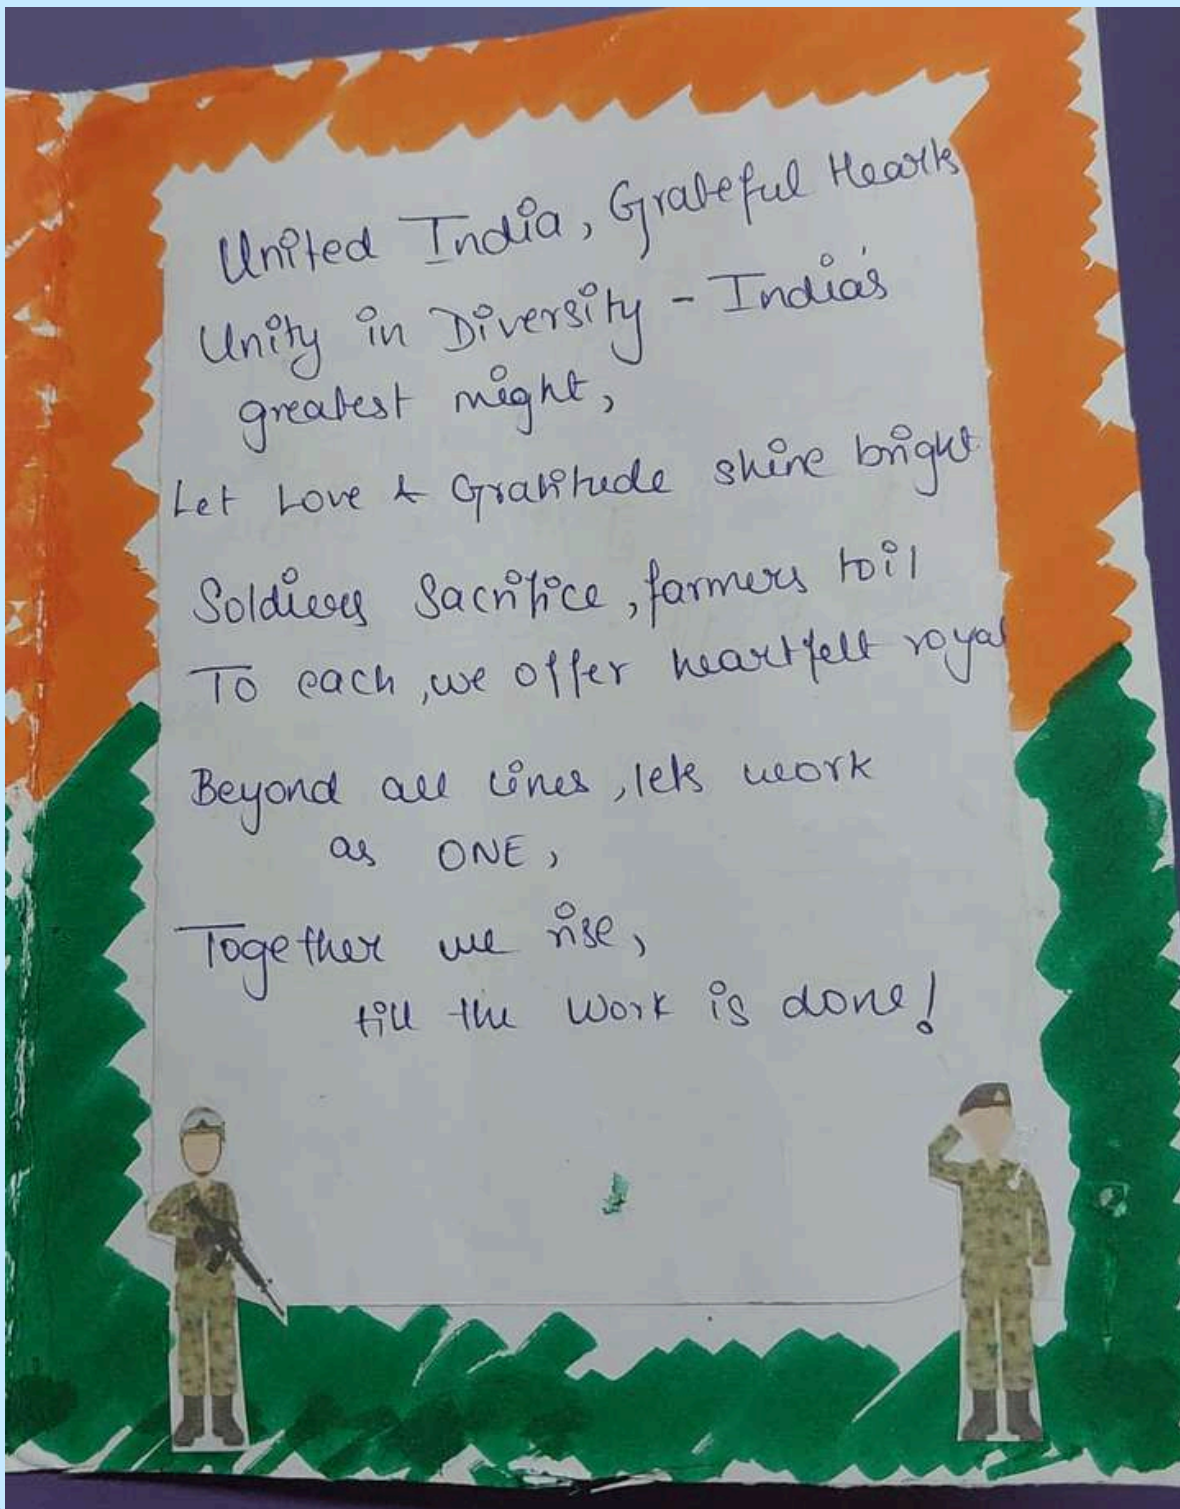 United India, Grateful Hearts
Unity in Diversity - India's
greatest might,
Let Love & Gratitude shine bright
Soldiers Sacrifice, farmers toil
To each, we offer heartfelt royal
Beyond all lines, lets work
as ONE,
Together we rise,
till the work is done!